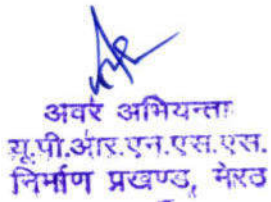 अवर अभियन्ता
यू.पी.आर.एन.एस.एस.
निर्माण प्रखण्ड, मेरठ